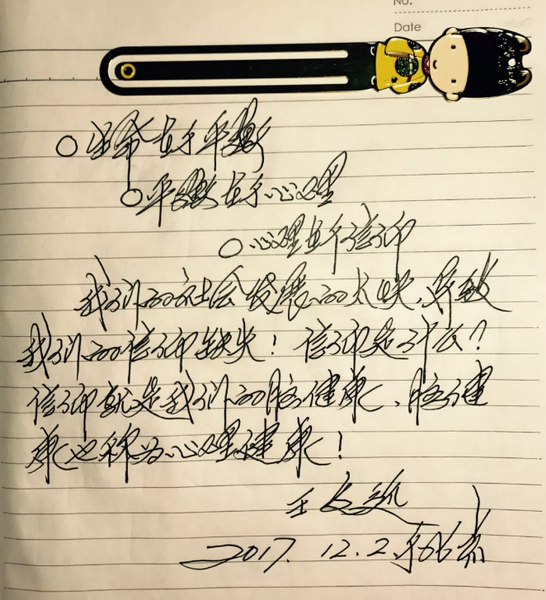 No.
Date
○生命在于平衡
○平衡在于心理
○心理在于信仰
我们的社会发展的太快,导致
我们的信仰缺失!信仰是什么?
信仰就是我们的脑健康、脑健
康也称为心理健康!
王
2017.12.2.于北京